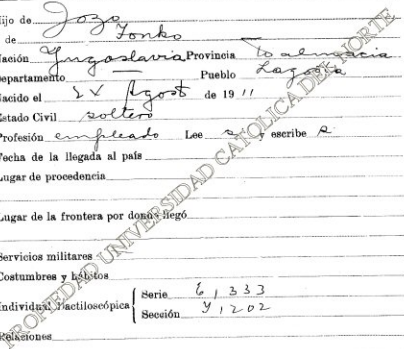 Hijo de Jozo
y de Tonko
Nación Yugoslavia Provincia Dalmacia
Departamento — Pueblo Lagosta
Nacido el Agost de 1911
Estado Civil soltero
Profesión empleado Lee si y escribe
Fecha de la llegada al país
Lugar de procedencia
Lugar de la frontera por donde llegó
Servicios militares
Costumbres y hábitos
Individual Dactiloscópica { Serie E, 333
Sección Y, 1202
Relaciones
PROPIEDAD UNIVERSIDAD CATOLICA DEL NORTE